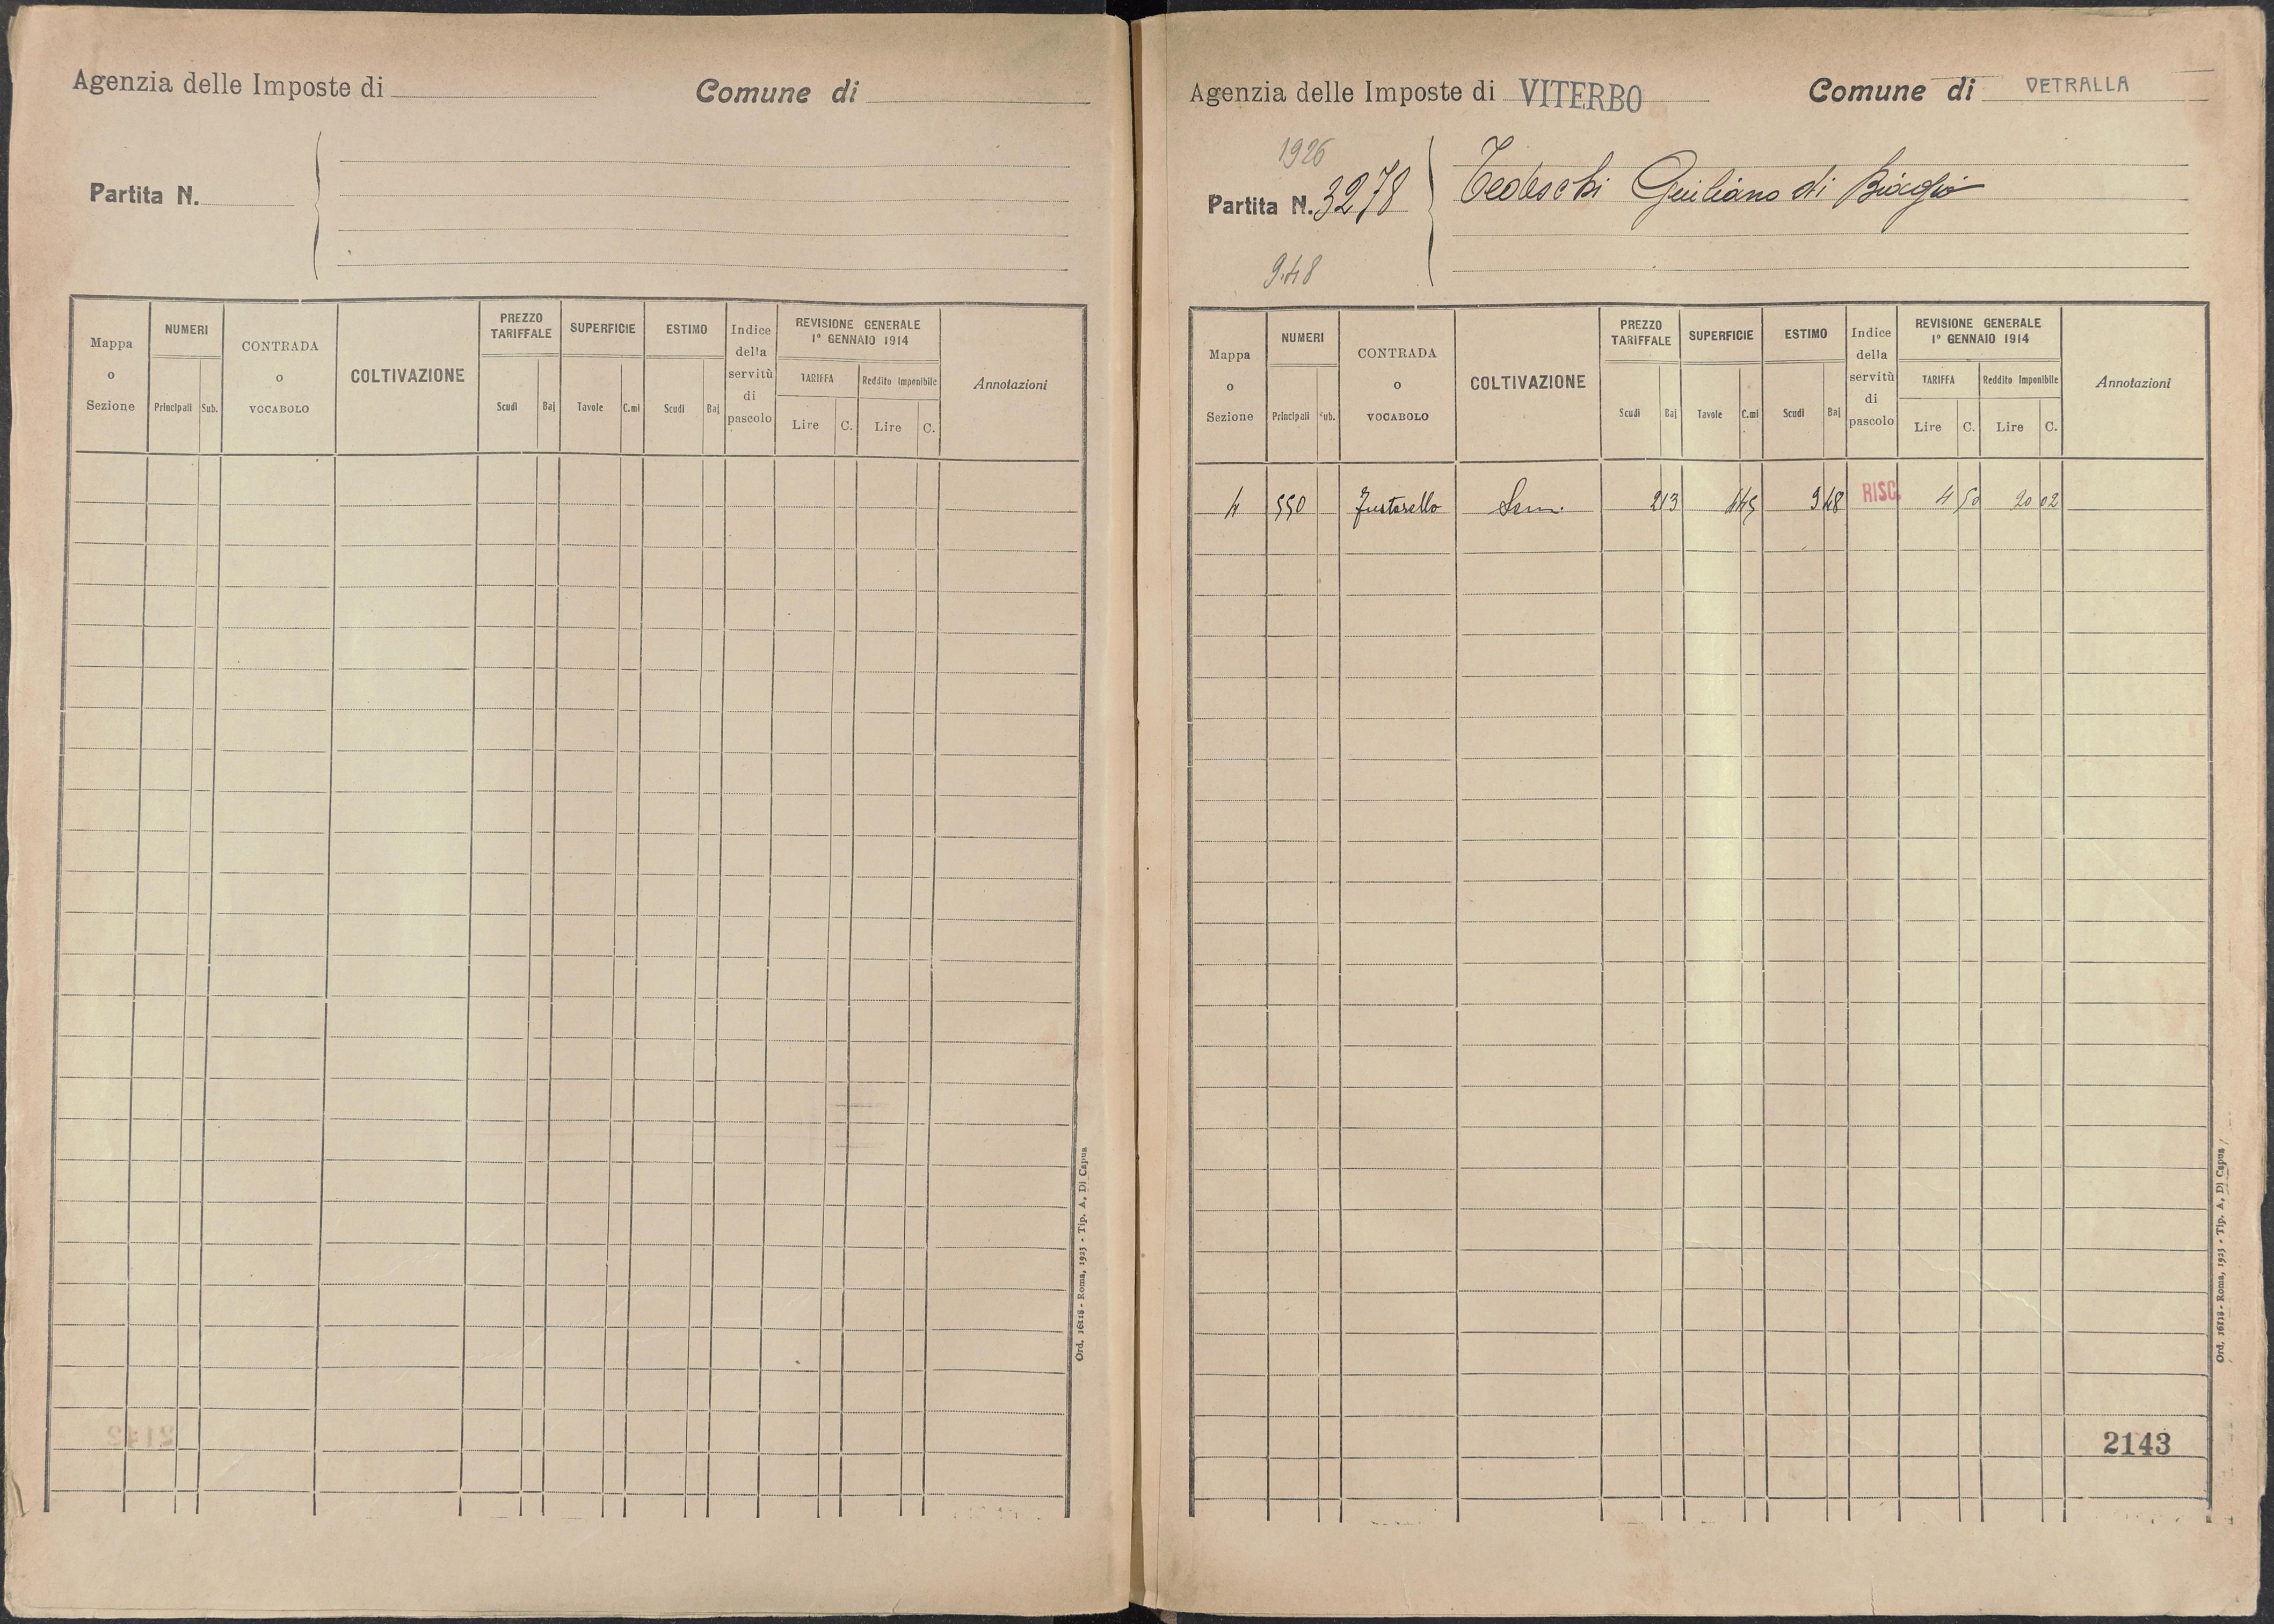 Agenzia delle Imposte di
Comune di
Partita N.
Mappa o Sezione
NUMERI
Principali Sub.
CONTRADA o VOCABOLO
COLTIVAZIONE
PREZZO TARIFFALE
Scudi Baj
SUPERFICIE
Tavole C.mi
ESTIMO
Scudi Baj
Indice della servitù di pascolo
REVISIONE GENERALE
1° GENNAIO 1914
TARIFFA
Lire C.
Reddito Imponibile
Lire C.
Annotazioni
Ord. 16218 - Roma, 1923 - Tip. A. Di Capua
Agenzia delle Imposte di VITERBO
Comune di VETRALLA
1926
Partita N. 3278
Tedeschi Giuliano di Biagio
9.48
Mappa o Sezione
NUMERI
Principali Sub.
CONTRADA o VOCABOLO
COLTIVAZIONE
PREZZO TARIFFALE
Scudi Baj
SUPERFICIE
Tavole C.mi
ESTIMO
Scudi Baj
Indice della servitù di pascolo
REVISIONE GENERALE
1° GENNAIO 1914
TARIFFA
Lire C.
Reddito Imponibile
Lire C.
Annotazioni
4 550 Sem. 2 13 4 45 9 48 RISC. 4 50 20 02
2143
Ord. 16218 - Roma, 1923 - Tip. A. Di Capua